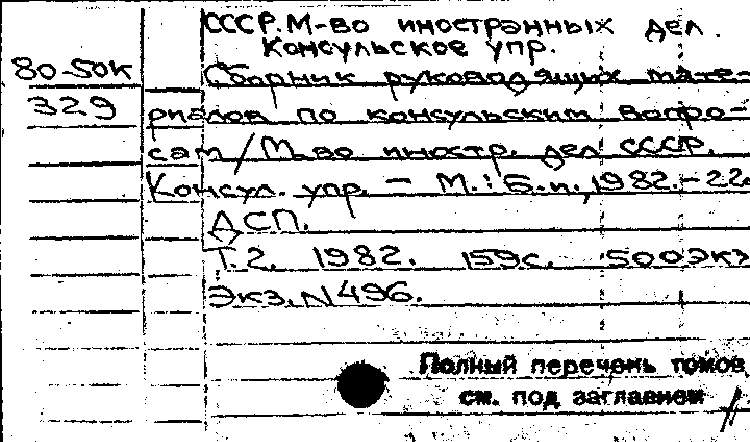 СССР. М-во иностранных дел.
Консульское упр.
80-50к
Сборник руководящих мате-
329
риалов по консульским вопро-
сам / М-во иностр. дел СССР.
Консул. упр. - М.: Б.и., 1982. - 22
ДСП.
Т.2. 1982. 159с. 500экз
Экз. N496.
Полный перечень томов
см. под заглавием